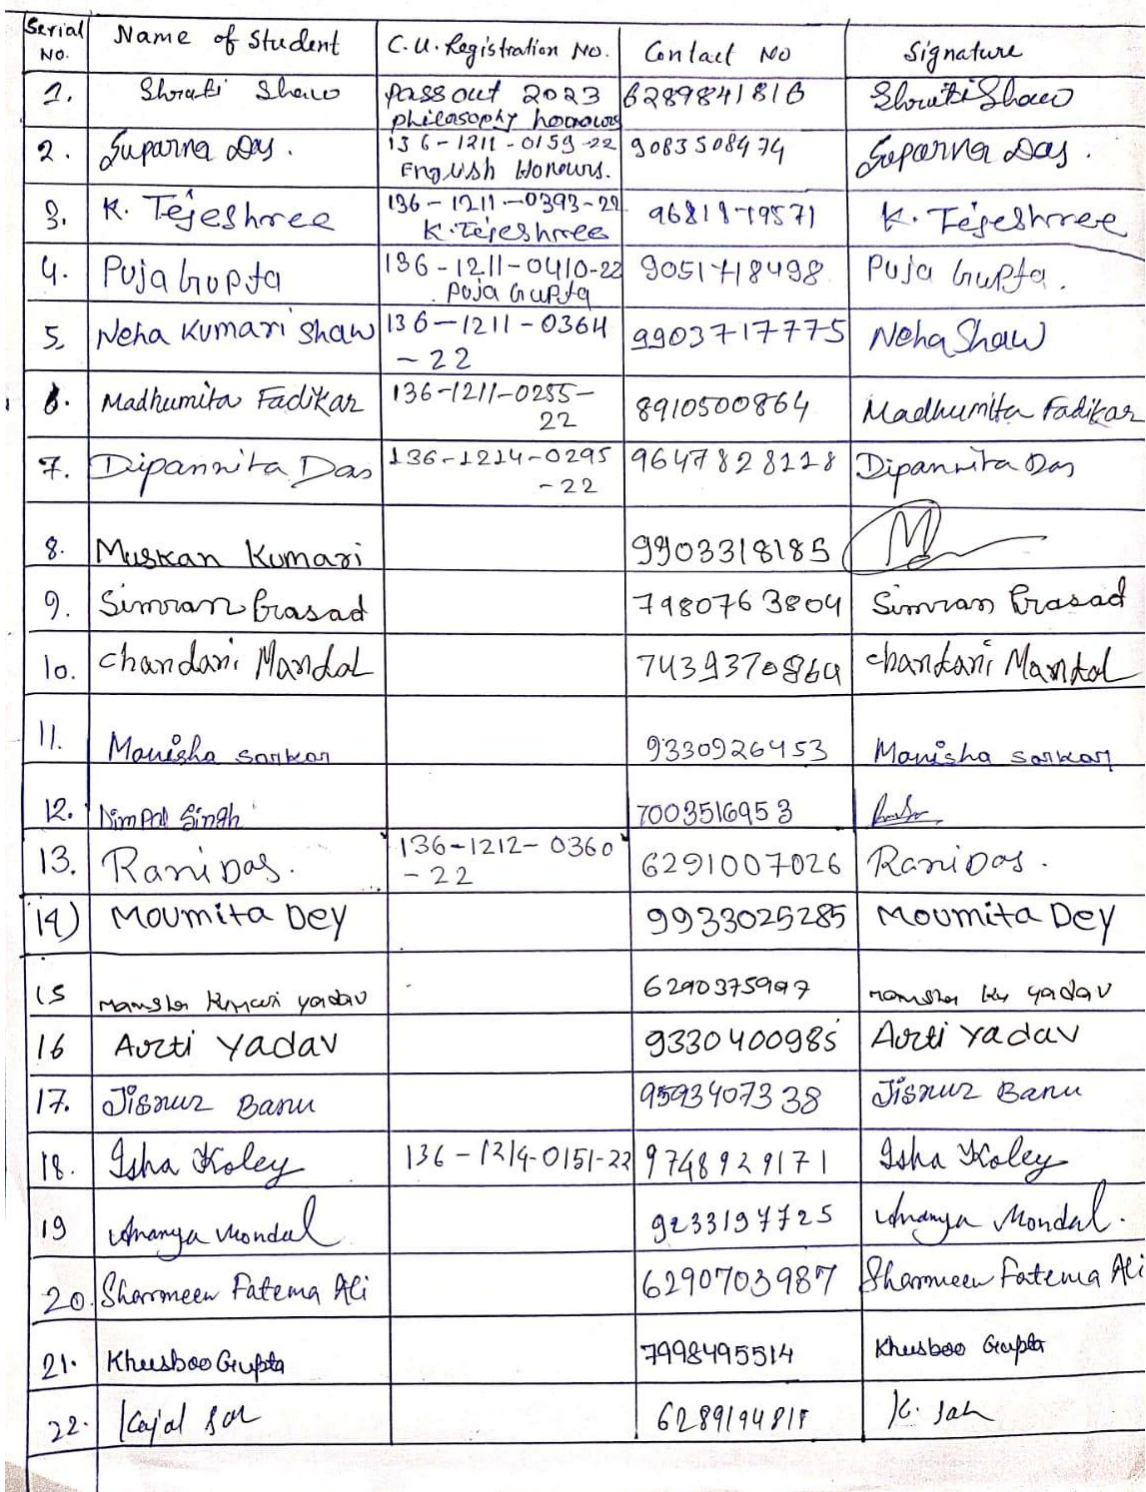 Serial No. Name of Student C.U. Registration No. Contact No Signature
1. Shruti Shaw Pass out 2023 6289841816 Shruti Shaw
philosophy honours
2. Suparna Das. 136-1211-0159-22 9083508474 Suparna Das.
English Honours.
3. K. Tejeshree 136-1211-0393-22 9681819571 K. Tejeshree
K. Tejeshree
4. Puja Gupta 136-1211-0410-22 9051718498 Puja Gupta.
Puja Gupta
5. Neha Kumari Shaw 136-1211-0364 9903717775 Neha Shaw
-22
6. Madhumita Fadikar 136-1211-0255- 8910500864 Madhumita Fadikar
22
7. Dipannita Das 136-1214-0295 9647828118 Dipannita Das
-22
8. Muskan Kumari 9903318185
9. Simran Prasad 7980763804 Simran Prasad
10. Chandani Mandal 7439370864 Chandani Mandal
11. Manisha Sarkar 9330926453 Manisha Sarkar
12. Dimpal Singh 7003516953
13. Rani Das. 136-1212-0360 6291007026 Rani Das.
-22
14) Moumita Dey 9933025285 Moumita Dey
15 Kumari Yadav 6290375997 Yadav
16 Arti Yadav 9330400985 Arti Yadav
17. Jisnur Banu 9593407338 Jisnur Banu
18. Isha Koley 136-1214-0151-22 9748929171 Isha Koley
19 Ananya Mondal 9233197725 Ananya Mondal.
20. Sharmeen Fatema Ali 6290703987 Sharmeen Fatema Ali
21. Khusboo Gupta 7998495514 Khusboo Gupta
22. Kajal K. Sah